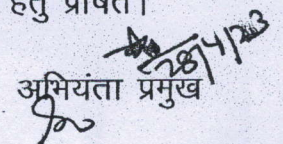 हेतु प्रेषित।
28/4/23
अभियंता प्रमुख